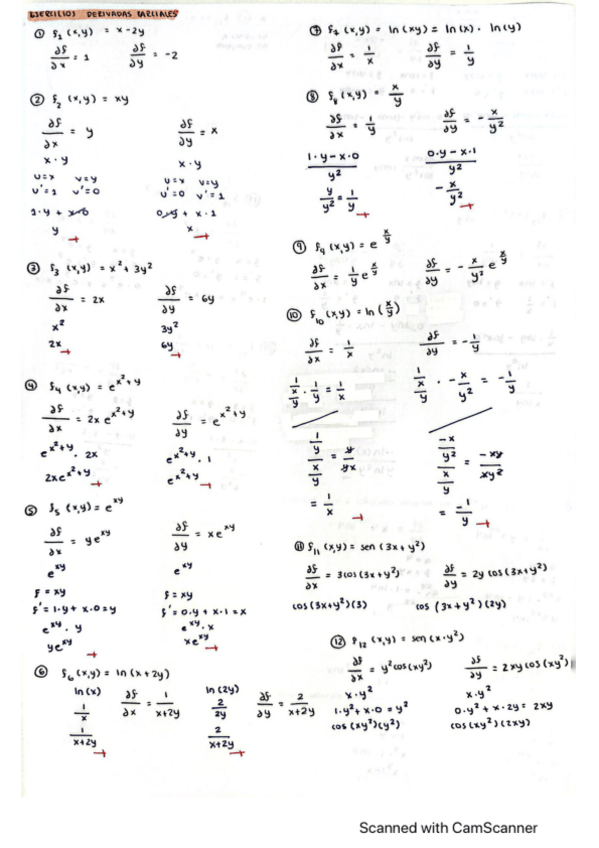 EJERCICIOS DERIVADAS PARCIALES
① f₁ (x,y) = x-2y
∂f/∂x = 1 ∂f/∂y = -2
② f₂ (x,y) = xy
∂f/∂x = y ∂f/∂y = x
x·y x·y
u=x v=y u=x v=y
u'=1 v'=0 u'=0 v'=1
1·y + x·0 0·y + x·1
y x
③ f₃ (x,y) = x² + 3y²
∂f/∂x = 2x ∂f/∂y = 6y
x² 3y²
2x 6y
④ f₄ (x,y) = e^(x²+y)
∂f/∂x = 2x e^(x²+y) ∂f/∂y = e^(x²+y)
e^(x²+y) · 2x e^(x²+y) · 1
2xe^(x²+y) e^(x²+y)
⑤ f₅ (x,y) = e^(xy)
∂f/∂x = ye^(xy) ∂f/∂y = xe^(xy)
e^(xy) e^(xy)
f = xy f = xy
f' = 1·y + x·0 = y f' = 0·y + x·1 = x
e^(xy) · y e^(xy) · x
ye^(xy) xe^(xy)
⑥ f₆ (x,y) = ln (x+2y)
ln (x) ∂f/∂x = 1/(x+2y) ln (2y) ∂f/∂y = 2/(x+2y)
1/x 2/2y
1/(x+2y) 2/(x+2y)
⑦ f₇ (x,y) = ln (xy) = ln (x) · ln (y)
∂f/∂x = 1/x ∂f/∂y = 1/y
⑧ f₈ (x,y) = x/y
∂f/∂x = 1/y ∂f/∂y = -x/y²
(1·y - x·0)/y² (0·y - x·1)/y²
y/y² = 1/y -x/y²
⑨ f₉ (x,y) = e^(x/y)
∂f/∂x = 1/y e^(x/y) ∂f/∂y = -x/y² e^(x/y)
⑩ f₁₀ (x,y) = ln (x/y)
∂f/∂x = 1/x ∂f/∂y = -1/y
1/(x/y) · 1/y = 1/x 1/(x/y) · -x/y² = -1/y
(1/y)/(x/y) = y/yx (-x/y²)/(x/y) = -xy/xy²
= 1/x = -1/y
⑪ f₁₁ (x,y) = sen (3x+y²)
∂f/∂x = 3cos (3x+y²) ∂f/∂y = 2y cos (3x+y²)
cos (3x+y²)(3) cos (3x+y²)(2y)
⑫ f₁₂ (x,y) = sen (x·y²)
∂f/∂x = y² cos (xy²) ∂f/∂y = 2xy cos (xy²)
x·y² x·y²
1·y² + x·0 = y² 0·y² + x·2y = 2xy
cos (xy²)(y²) cos (xy²)(2xy)
Scanned with CamScanner